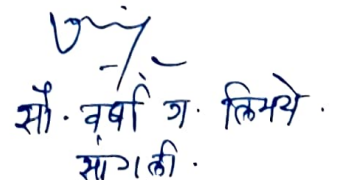 सौ. वर्षा ग. लिमये.
सांगली.